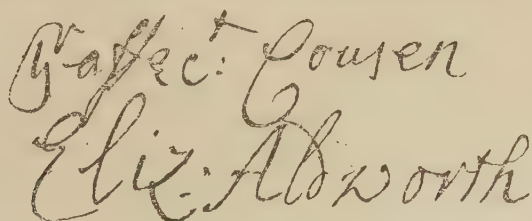 Yr affect: Cousen
Eliz: Adworth